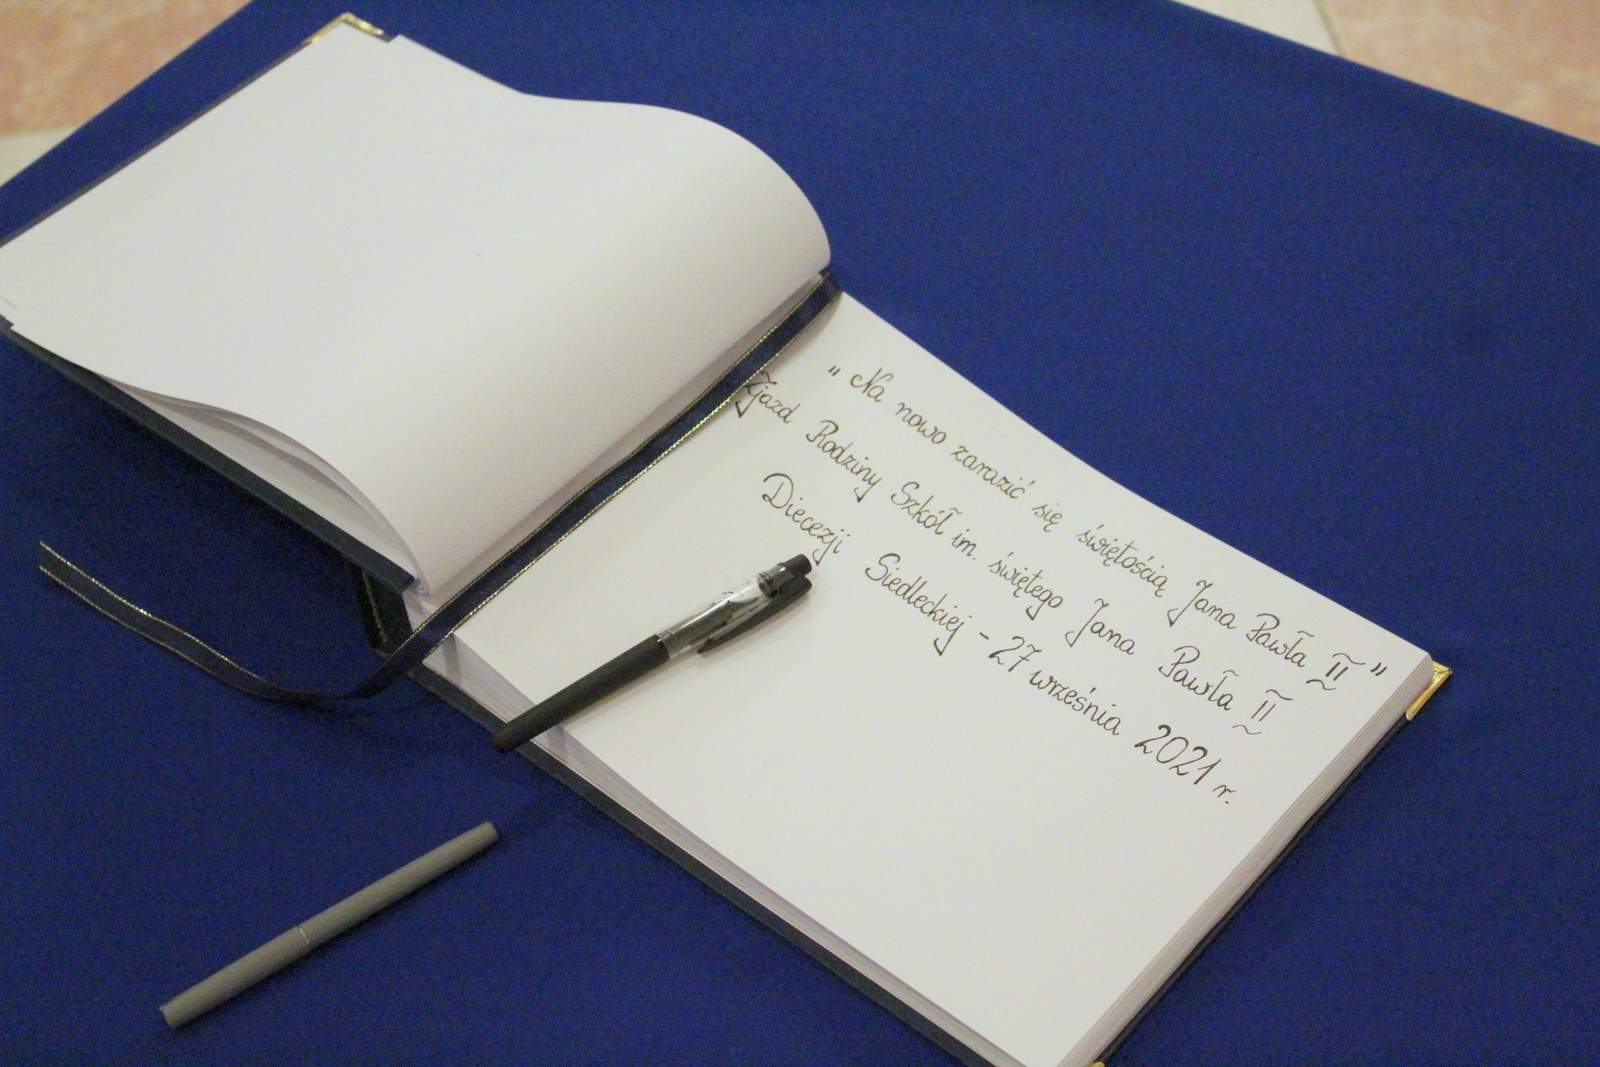 "Na nowo zarazić się świętością Jana Pawła II"
Zjazd Rodziny Szkół im. świętego Jana Pawła II
Diecezji Siedleckiej - 27 września 2021 r.